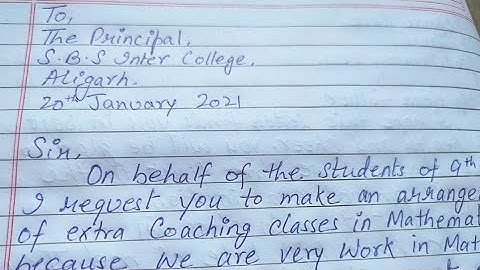 To,
The Principal,
S.B.S Inter College,
Aligarh.
20th January 2021
Sir,
On behalf of the students of 9th
I request you to make an arrange
of extra Coaching classes in Mathemat
because we are very work in Mat